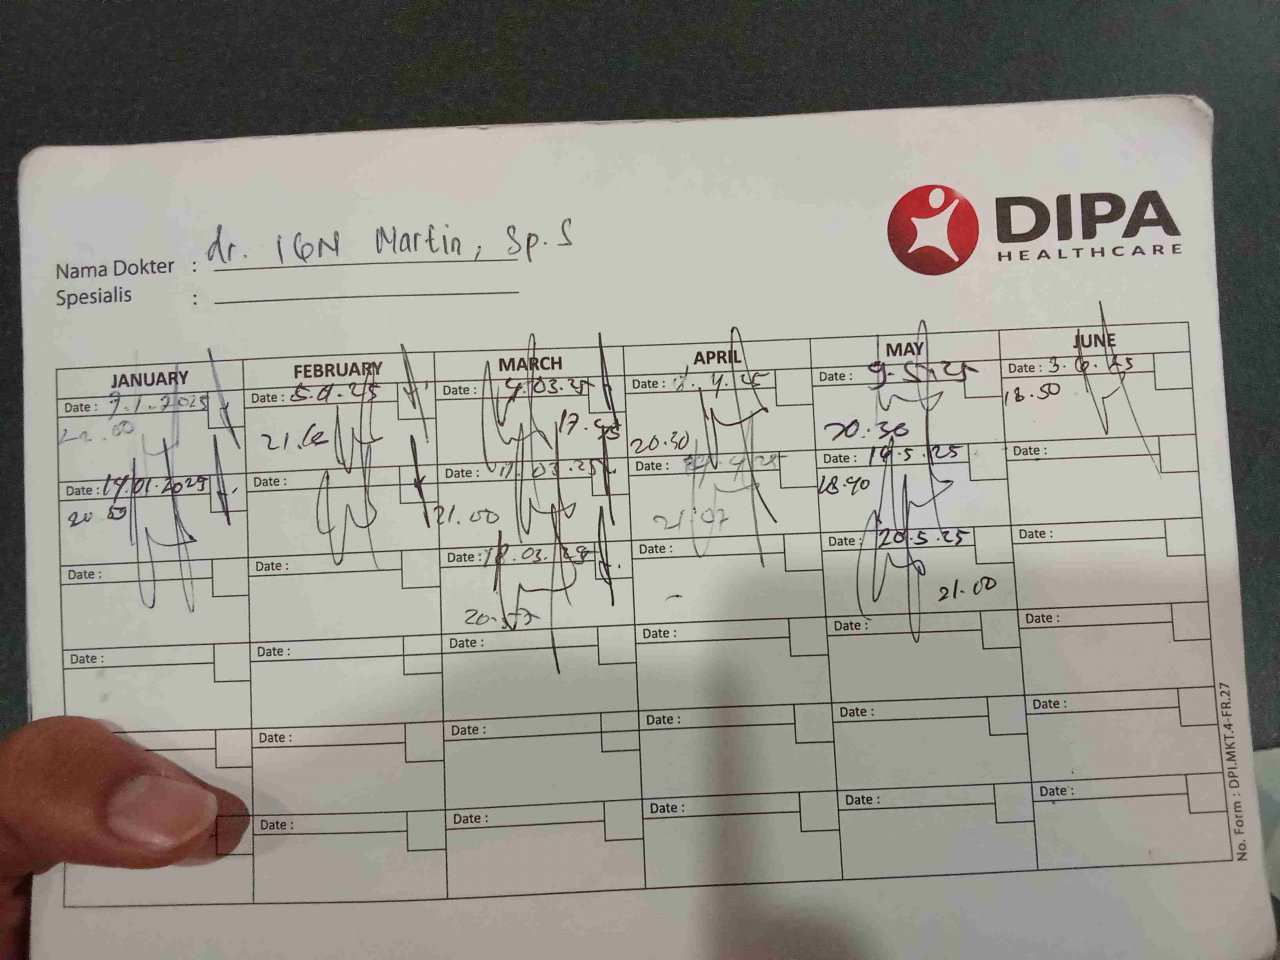 DIPA
HEALTHCARE
Nama Dokter : dr. IGN Martin, Sp.S
Spesialis :
JANUARY FEBRUARY MARCH APRIL MAY JUNE
Date : 7.1.2025 Date : Date : 4.03.25 Date : Date : 9.5.25 Date : 3.6.25
17.45 20.30 20.30 18.50
Date : 14.01.2025 Date : Date : 11.03.25 Date : Date : 14.5.25 Date :
21.00 21.07 18.40
Date : Date : Date : 18.03.25 Date : Date : 20.5.25 Date :
21.00
Date : Date : Date : Date : Date : Date :
Date : Date : Date : Date : Date :
Date : Date : Date : Date : Date :
No. Form : DPI.MKT.4-FR.27